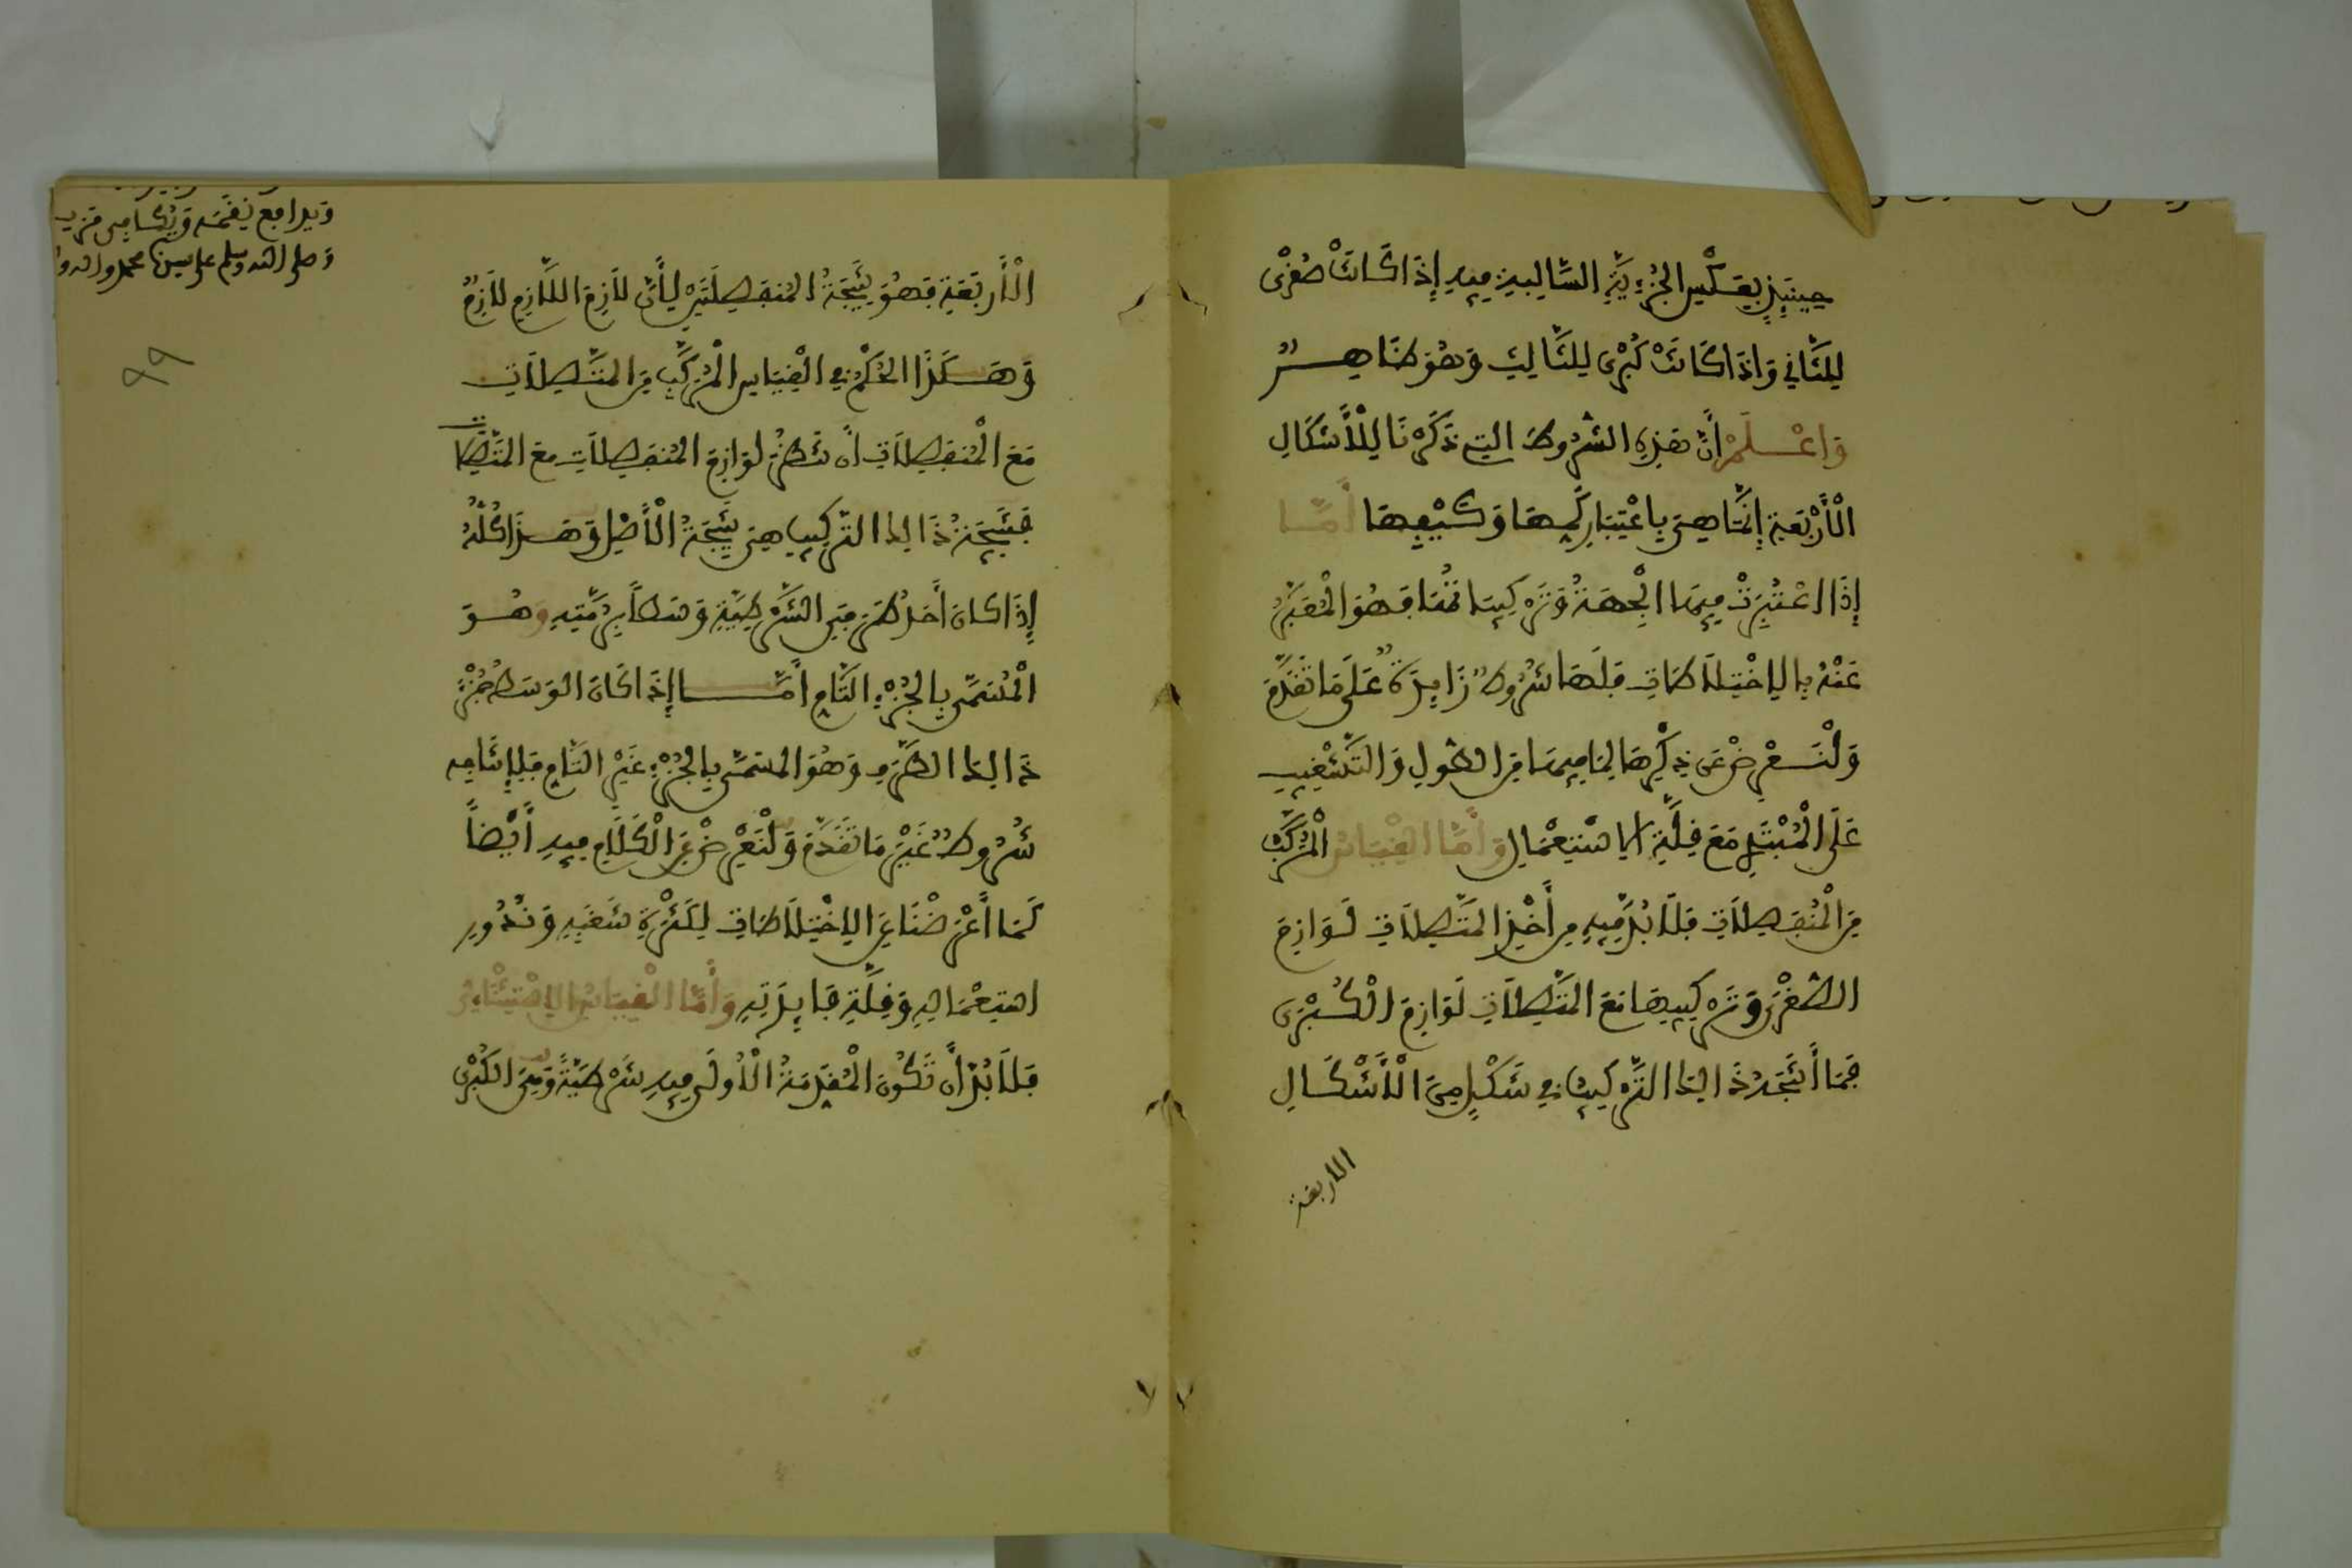 حِينَئِذٍ بِعَكْسِ الجُزْئِيَّةِ السَّالِبَةِ فِيهِ إِذَا كَانَتْ صُغْرَى
لِلثَّانِي وَإِذَا كَانَتْ كُبْرَى لِلثَّالِثِ وَهُوَ ظَاهِرٌ
وَاعْلَمْ أَنَّ هَذِهِ الشُّرُوطَ التِي ذَكَرْنَا لِلْأَشْكَالِ
الْأَرْبَعَةِ إِنَّمَا هِيَ بِاعْتِبَارِ كَمِّهَا وَكَيْفِهَا أَمَّا
إِذَا اعْتُبِرَتْ فِيهَا الْجِهَةُ وَتَرْكِيبَاتُهَا فَهُوَ الْمُعَبَّرُ
عَنْهُ بِالِاخْتِلَاطَاتِ فَلَهَا شُرُوطٌ زَايِدَةٌ عَلَى مَا تَقَدَّمَ
وَلْنُعْرِضْ عَنْ ذِكْرِهَا لِمَا فِيهَا مِنَ الطُّولِ وَالتَّشْغِيبِ
عَلَى الْمُبْتَدِي مَعَ قِلَّةِ الِاسْتِعْمَالِ وَأَمَّا الْقِيَاسُ الْمُرَكَّبُ
مِنَ الْمُنفَصِلَاتِ فَلَا بُدَّ فِيهِ مِنْ أَخْذِ المُتَّصِلَاتِ لَوَازِمَ
الصُّغْرَى وَتَرْكِيبِهَا مَعَ المُتَّصِلَاتِ لَوَازِمَ الْكُبْرَى
فَمَا أَنْتَجَهُ ذَالِكَ التَّرْكِيبُ فِي شَكْلٍ مِنَ الْأَشْكَالِ
الأربعة
وصلى الله وسلم على سيدنا محمد وآله
٩٩
الْأَرْبَعَةِ فَهُوَ نَتِيجَةُ المُنفَصِلَتَيْنِ لِأَنَّ لَازِمَ اللَّازِمِ لَازِمٌ
وَهَكَذَا الحُكْمُ فِي الْقِيَاسِ الْمُرَكَّبِ مِنَ المُتَّصِلَاتِ
مَعَ الْمُنفَصِلَاتِ أَنْ تَنظُرَ لَوَازِمَ المُنفَصِلَاتِ مَعَ المُتَّصِلَاتِ
فَنَتِيجَةُ ذَالِكَ التَّرْكِيبِ هِيَ نَتِيجَةُ الْأَصْلِ وَهَذَا كُلُّهُ
إِذَا كَانَ أَحَدُ طَرَفَيِ الشَّرْطِيَّةِ وَسَطًا بِرُمَّتِهِ وَهُوَ
الْمُسَمَّى بِالجُزْءِ التَّامِّ أَمَّا إِذَا كَانَ الوَسَطُ جُزْءَ
ذَالِكَ الطَّرَفِ وَهُوَ المُسَمَّى بِالجُزْءِ غَيْرِ التَّامِّ فَلِإِنتَاجِهِ
شُرُوطٌ غَيْرُ مَا تَقَدَّمَ وَلْنُعْرِضْ عَنِ الْكَلَامِ فِيهِ أَيْضًا
كَمَا أَعْرَضْنَا عَنِ الِاخْتِلَاطَاتِ لِكَثْرَةِ شَغَبِهِ وَنُدُورِ
اسْتِعْمَالِهِ وَقِلَّةِ فَايِدَتِهِ وَأَمَّا الْقِيَاسُ الِاسْتِثْنَائِيُّ
فَلَا بُدَّ أَنْ تَكُونَ الْمُقَدِّمَةُ الْأُولَى فِيهِ شَرْطِيَّةً وَهِيَ الكُبْرَى